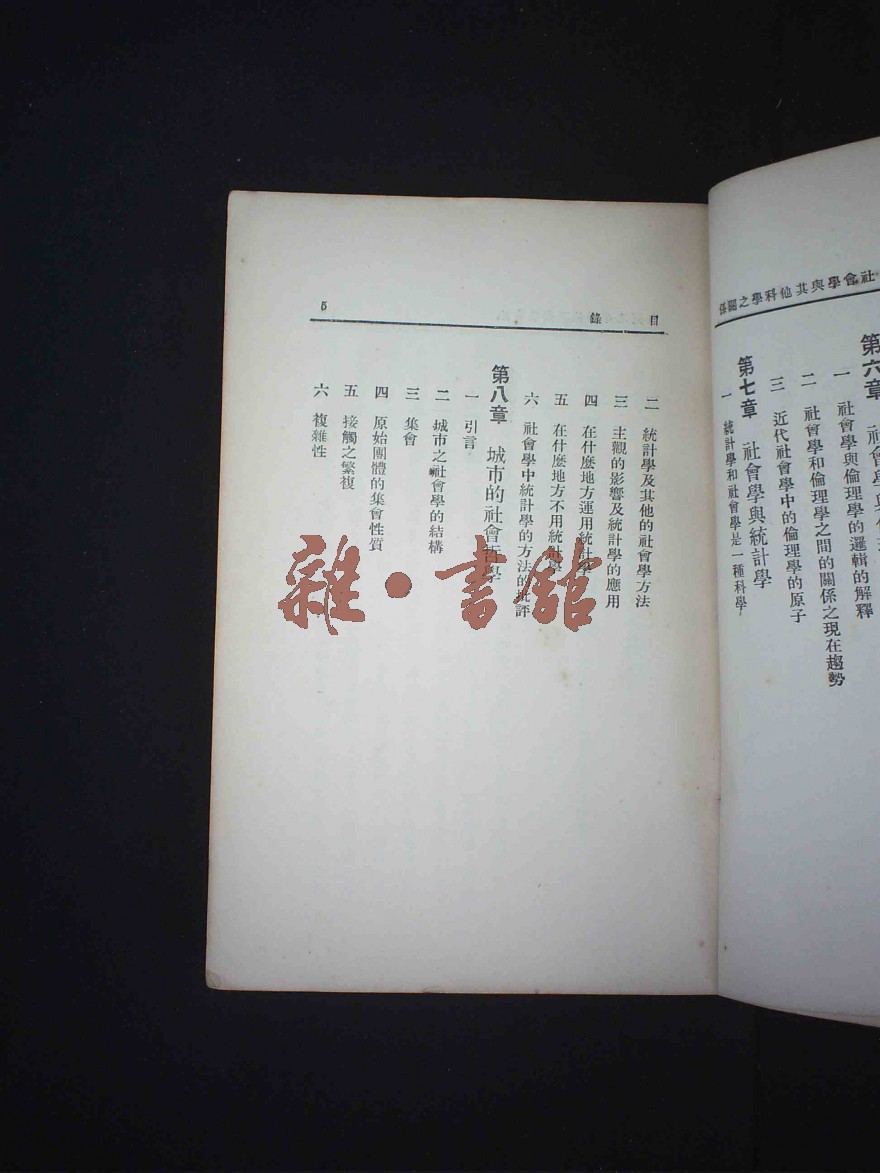 社會學與其他科學之關係
第六章　社會學與
一　社會學與倫理學的邏輯的解釋
二　社會學和倫理學之間的關係之現在趨勢
三　近代社會學中的倫理學的原子
第七章　社會學與統計學
一　統計學和社會學是一種科學
目錄
5
二　統計學及其他的社會學方法
三　主觀的影響及統計學的應用
四　在什麽地方運用統計學
五　在什麽地方不用統計學
六　社會學中統計學的方法的批評
第八章　城市的社會哲學
一　引言
二　城市之社會學的結構
三　集會
四　原始團體的集會性質
五　接觸之繁複
六　複雜性
雜·書館